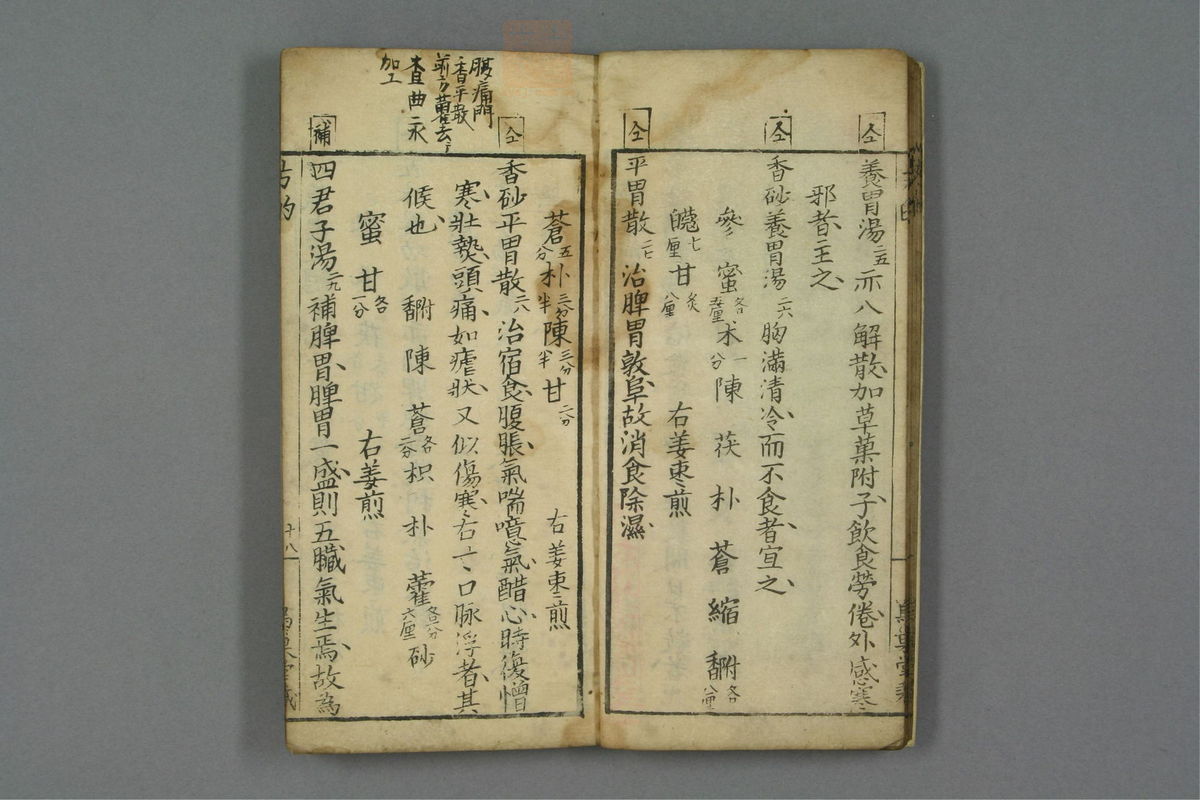 仝
養胃湯二五 示八解散加草菓附子飲食勞倦外感寒
邪者主之
仝
香砂養胃湯二六 胸滿清冷而不食者宜之
參 蜜各五厘 朮一分 陳 茯 朴 蒼 縮 香附各八厘
七厘 甘炙八厘 右姜枣煎
仝
平胃散二七 治脾胃敦阜故消食除濕
蒼五分 朴三分半 陳三分半 甘二分 右姜枣煎
腸痛門
香平散
前方藿去
査曲永
加工
仝
香砂平胃散二八 治宿食腹脹氣喘噫氣醋心時復憎
寒壯熱頭痛如瘧狀又似傷寒右寸口脉浮者其
候也 香附 陳 蒼各二分 枳 朴 藿各一分六厘 砂
蜜 甘各一分 右姜煎
補
四君子湯二九 補脾胃脾胃一盛則五臟氣生焉故為
十八